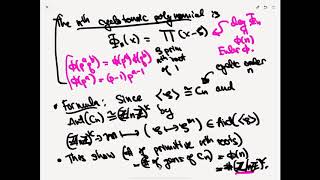 The nth cyclotomic polynomial is
Φₙ(x) = ∏ (x-ζ)
ζ prim
nth root
of 1
deg Φₙ
φ(n)
Euler φ.
φ(pᵃqᵇ) = φ(pᵃ)φ(qᵇ)
φ(pᵃ) = (p-1)pᵃ⁻¹
cyclic order n
• Formula: Since <ζ> ≅ Cₙ and
Aut(Cₙ) ≅ (ℤ/nℤ)ˣ by
(ℤ/nℤ)ˣ ∋ m ↦ (ζ ↦ ζᵐ) ∈ Aut(<ζ>)
• This shows (# of primitive nth roots)
= (# of gens of Cₙ) = φ(n)
= #(ℤ/nℤ)ˣ.